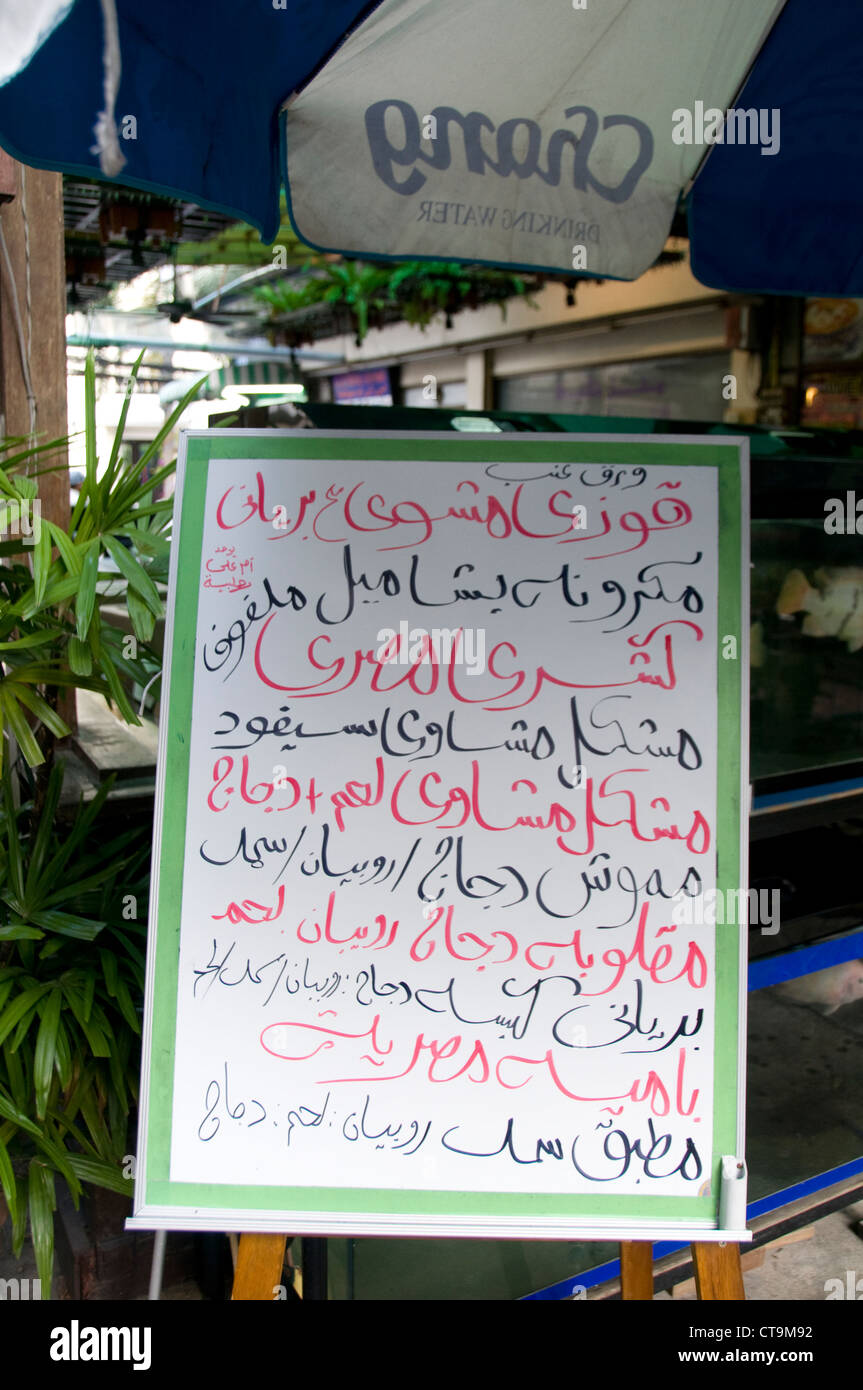 Chang
DRINKING WATER
ورق عنب
قوزي مشوي ع برياني
يوجد
أم علي
حليبة
مكرونه بشاميل ملفوف
كشري مصري
مشكل مشاوي سيفود
مشكل مشاوي لحم + دجاج
مموش دجاج / روبيان / سمك
مقلوبه دجاج روبيان لحم
برياني كبسه دجاج : روبيان / سمك / لحم
باميه مصريه
مطبق سمك روبيان : لحم : دجاج
alamy
Image ID: CT9M92
www.alamy.com